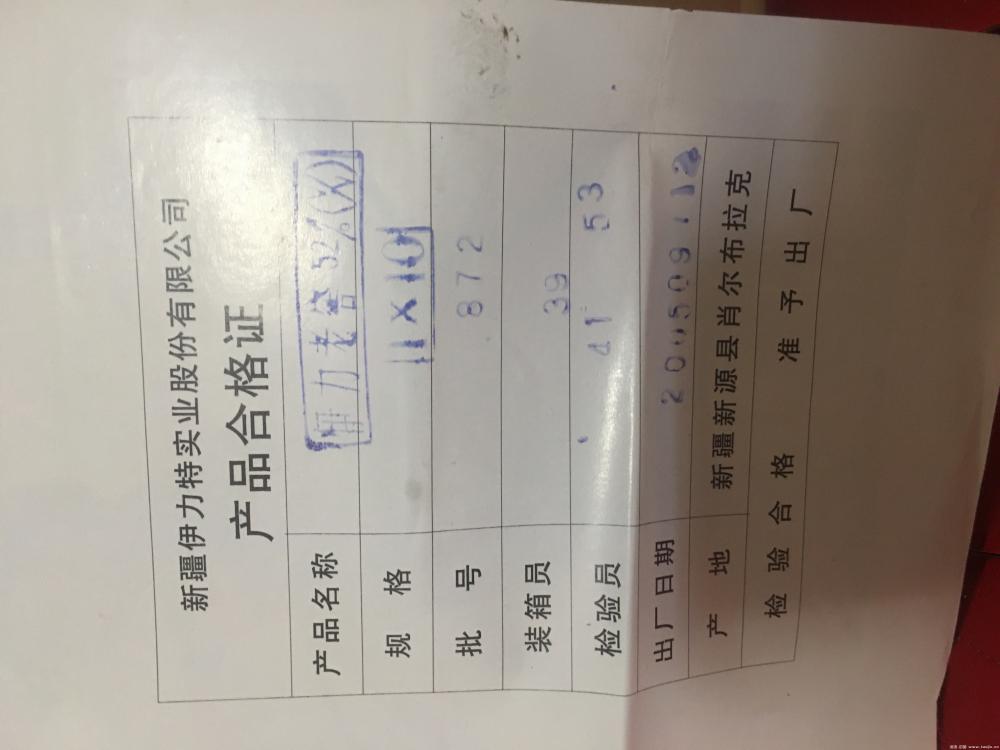 新疆伊力特实业股份有限公司
产品合格证
产品名称 伊力老窖52%(X)
规格 1X10
批号 872
装箱员 39
检验员 41 53
出厂日期 200509112
产地 新疆新源县肖尔布拉克
检验合格 准予出厂